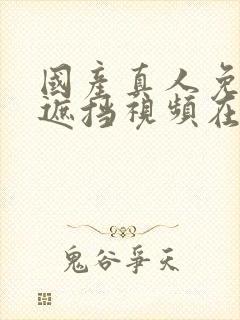 國產真人免
遮挡視頻在
鬼谷爭天